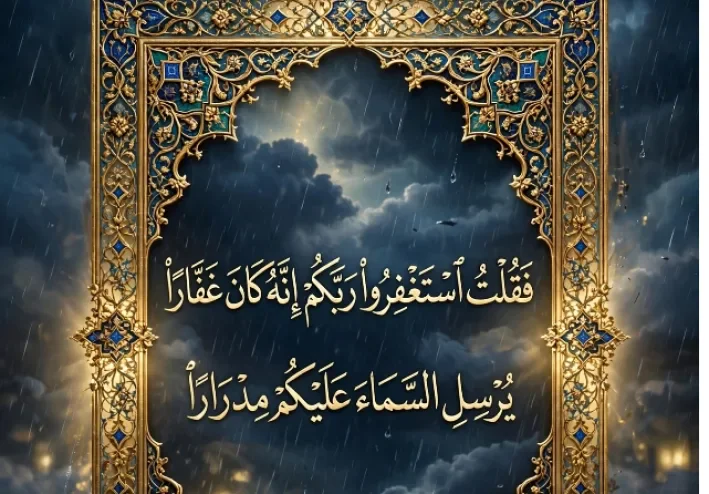 فَقُلْتُ ٱسْتَغْفِرُوا۟ رَبَّكُمْ إِنَّهُ كَانَ غَفَّارًا
يُرْسِلِ السَّمَاءَ عَلَيْكُمْ مِدْرَارًا